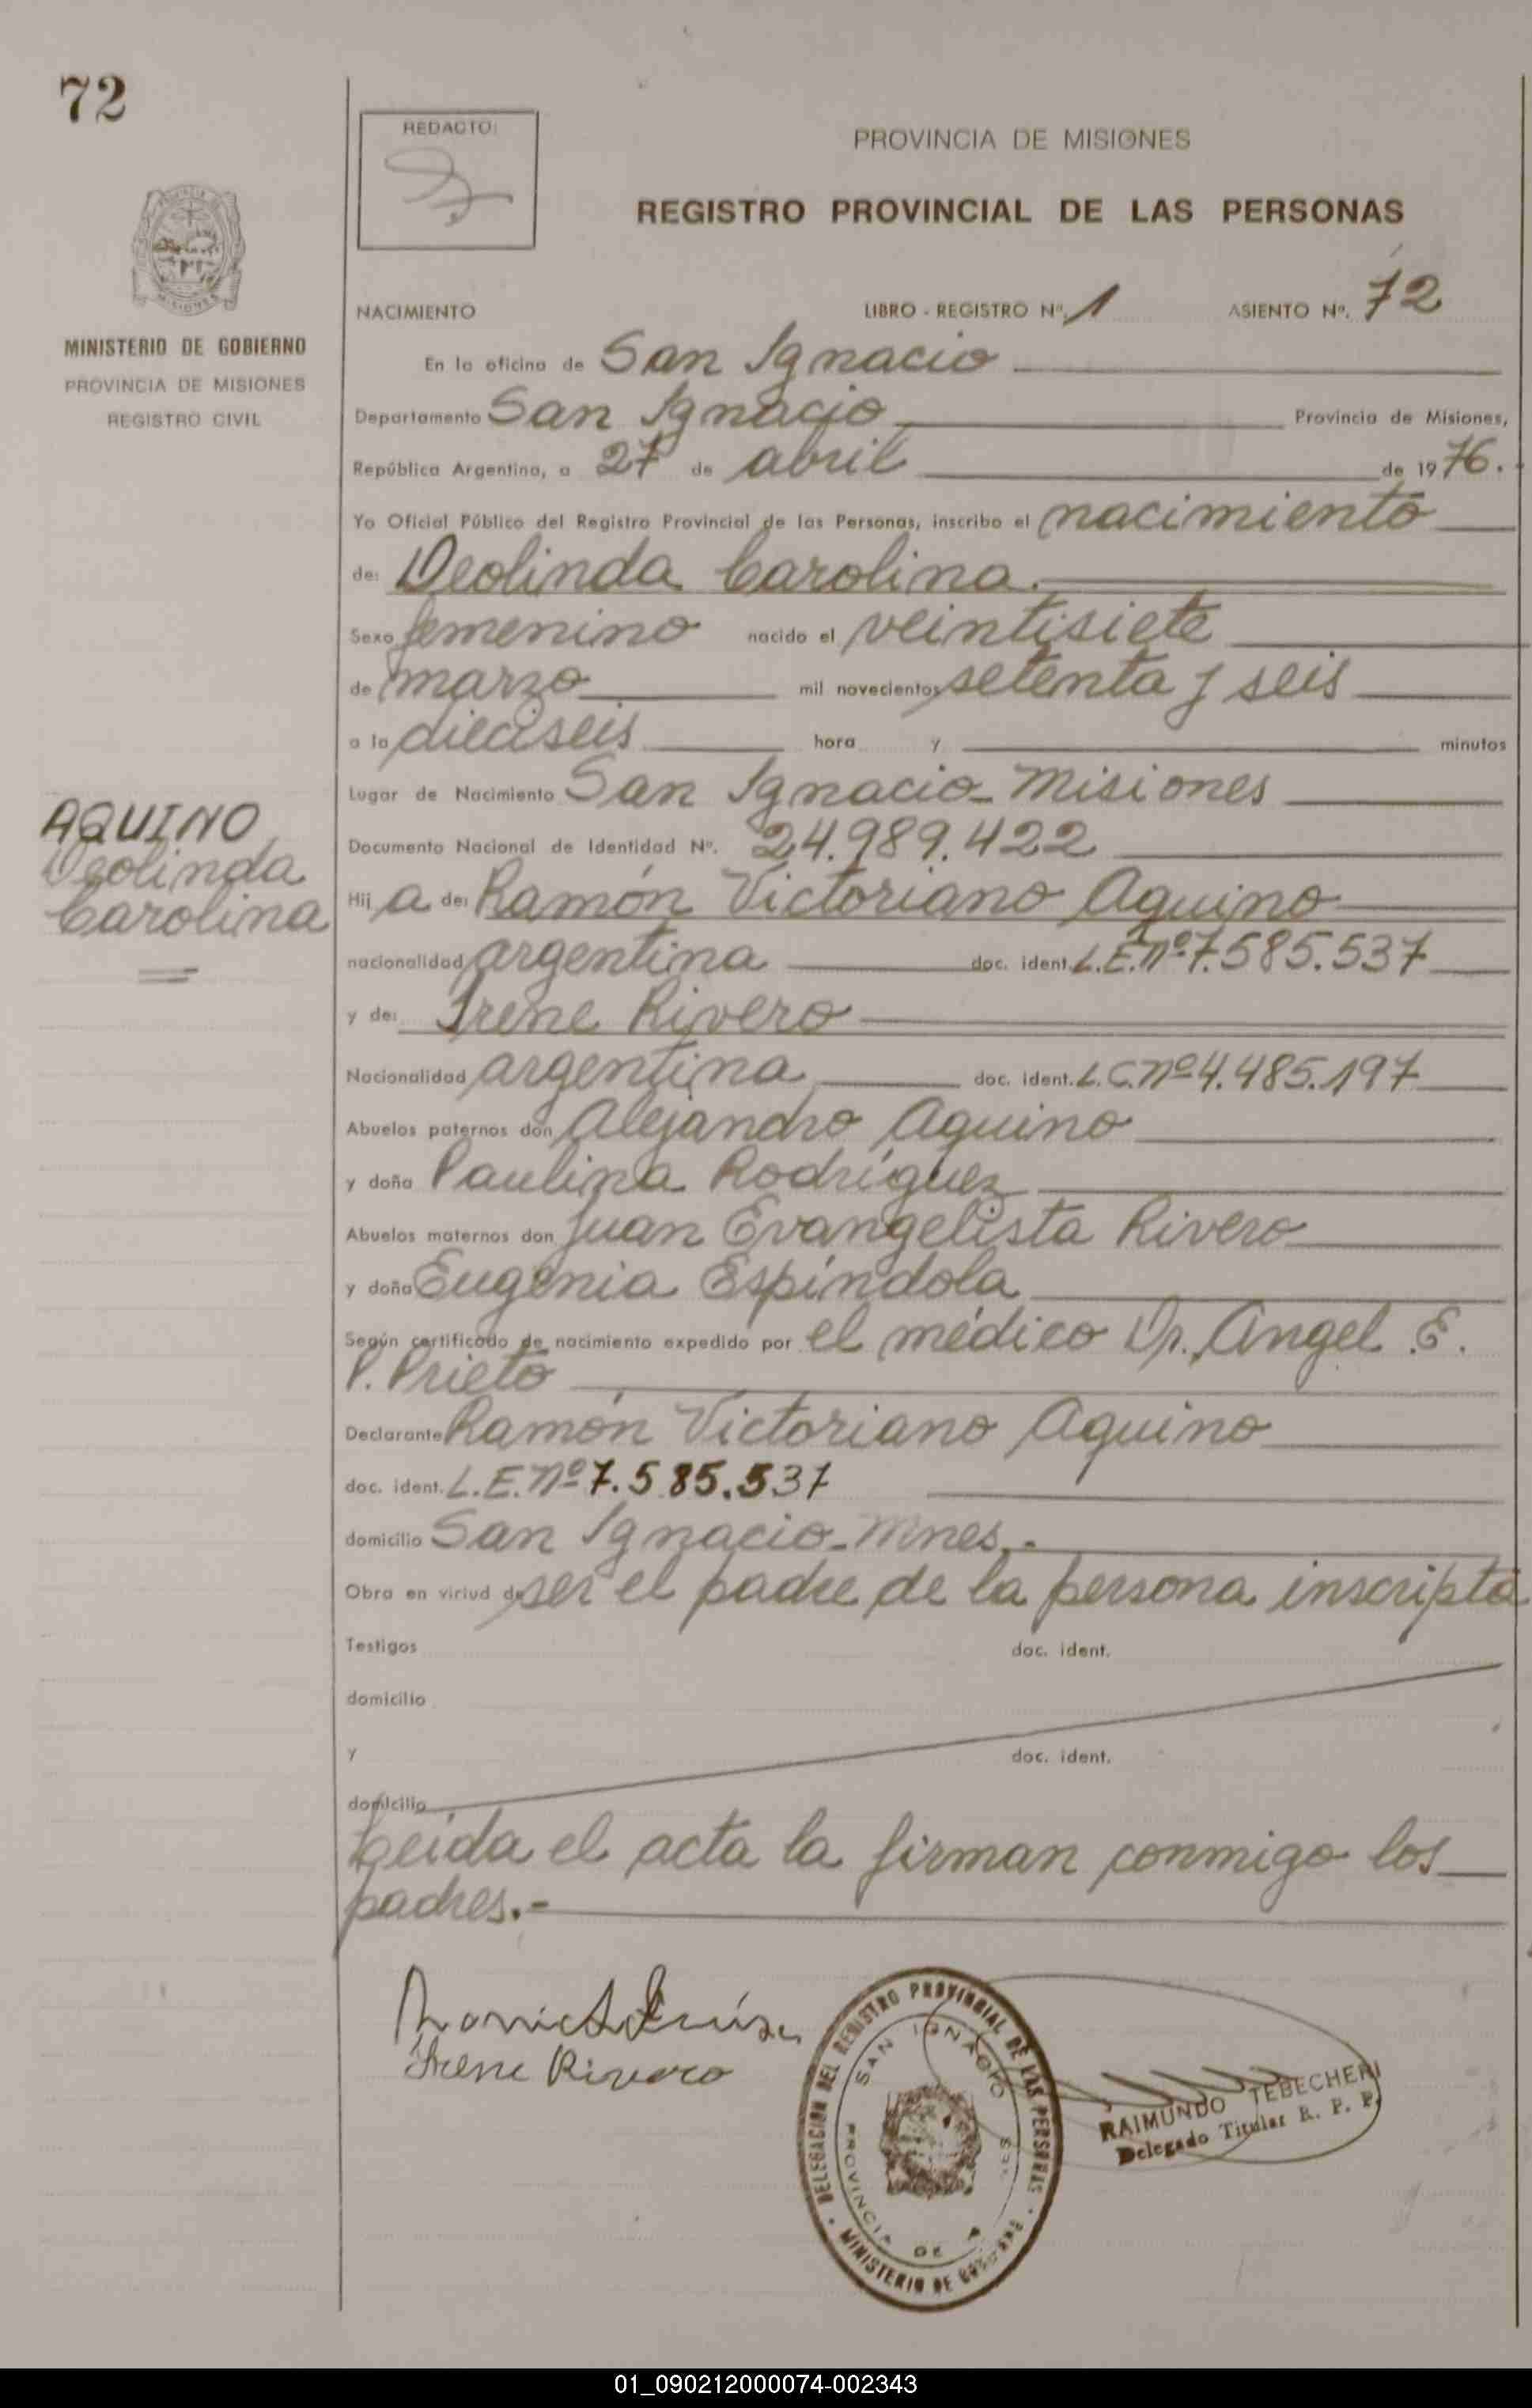 72
REDACTO:
PROVINCIA DE MISIONES
REGISTRO PROVINCIAL DE LAS PERSONAS
MINISTERIO DE GOBIERNO
PROVINCIA DE MISIONES
REGISTRO CIVIL
NACIMIENTO LIBRO - REGISTRO Nº. 1 ASIENTO Nº. 72
En la oficina de San Ignacio
Departamento San Ignacio Provincia de Misiones,
República Argentina, a 27 de abril de 1976.
Yo Oficial Público del Registro Provincial de las Personas, inscribo el nacimiento
de: Deolinda Carolina.
Sexo femenino nacido el veintisiete
de marzo mil novecientos setenta y seis
a la dieciseis hora y minutos
Lugar de Nacimiento San Ignacio-Misiones
AQUINO
Deolinda
Carolina
Documento Nacional de Identidad Nº. 24.989.422
Hij a de: Ramón Victoriano Aquino
nacionalidad argentina doc. ident. L.E.nº7.585.537
y de: Irene Rivero
Nacionalidad argentina doc. ident. L.C.nº4.485.197
Abuelos paternos don Alejandro Aquino
y doña Paulina Rodríguez
Abuelos maternos don Juan Evangelista Rivero
y doña Eugenia Espíndola
Según certificado de nacimiento expedido por el médico Dr. Angel E.
P. Prieto
Declarante Ramón Victoriano Aquino
doc. ident. L.E.nº7.585.537
domicilio San Ignacio-Mnes.-
Obra en virtud de ser el padre de la persona inscripta
Testigos doc. ident.
domicilio
y doc. ident.
domicilio
Leída el acta la firman conmigo los
padres.-
Irene Rivero
DELEGACION DEL REGISTRO PROVINCIAL DE LAS PERSONAS
MINISTERIO DE GOBIERNO
SAN IGNACIO
PROVINCIA DE
RAIMUNDO TEBECHERI
Delegado Titular R. P. P.
01_090212000074-002343